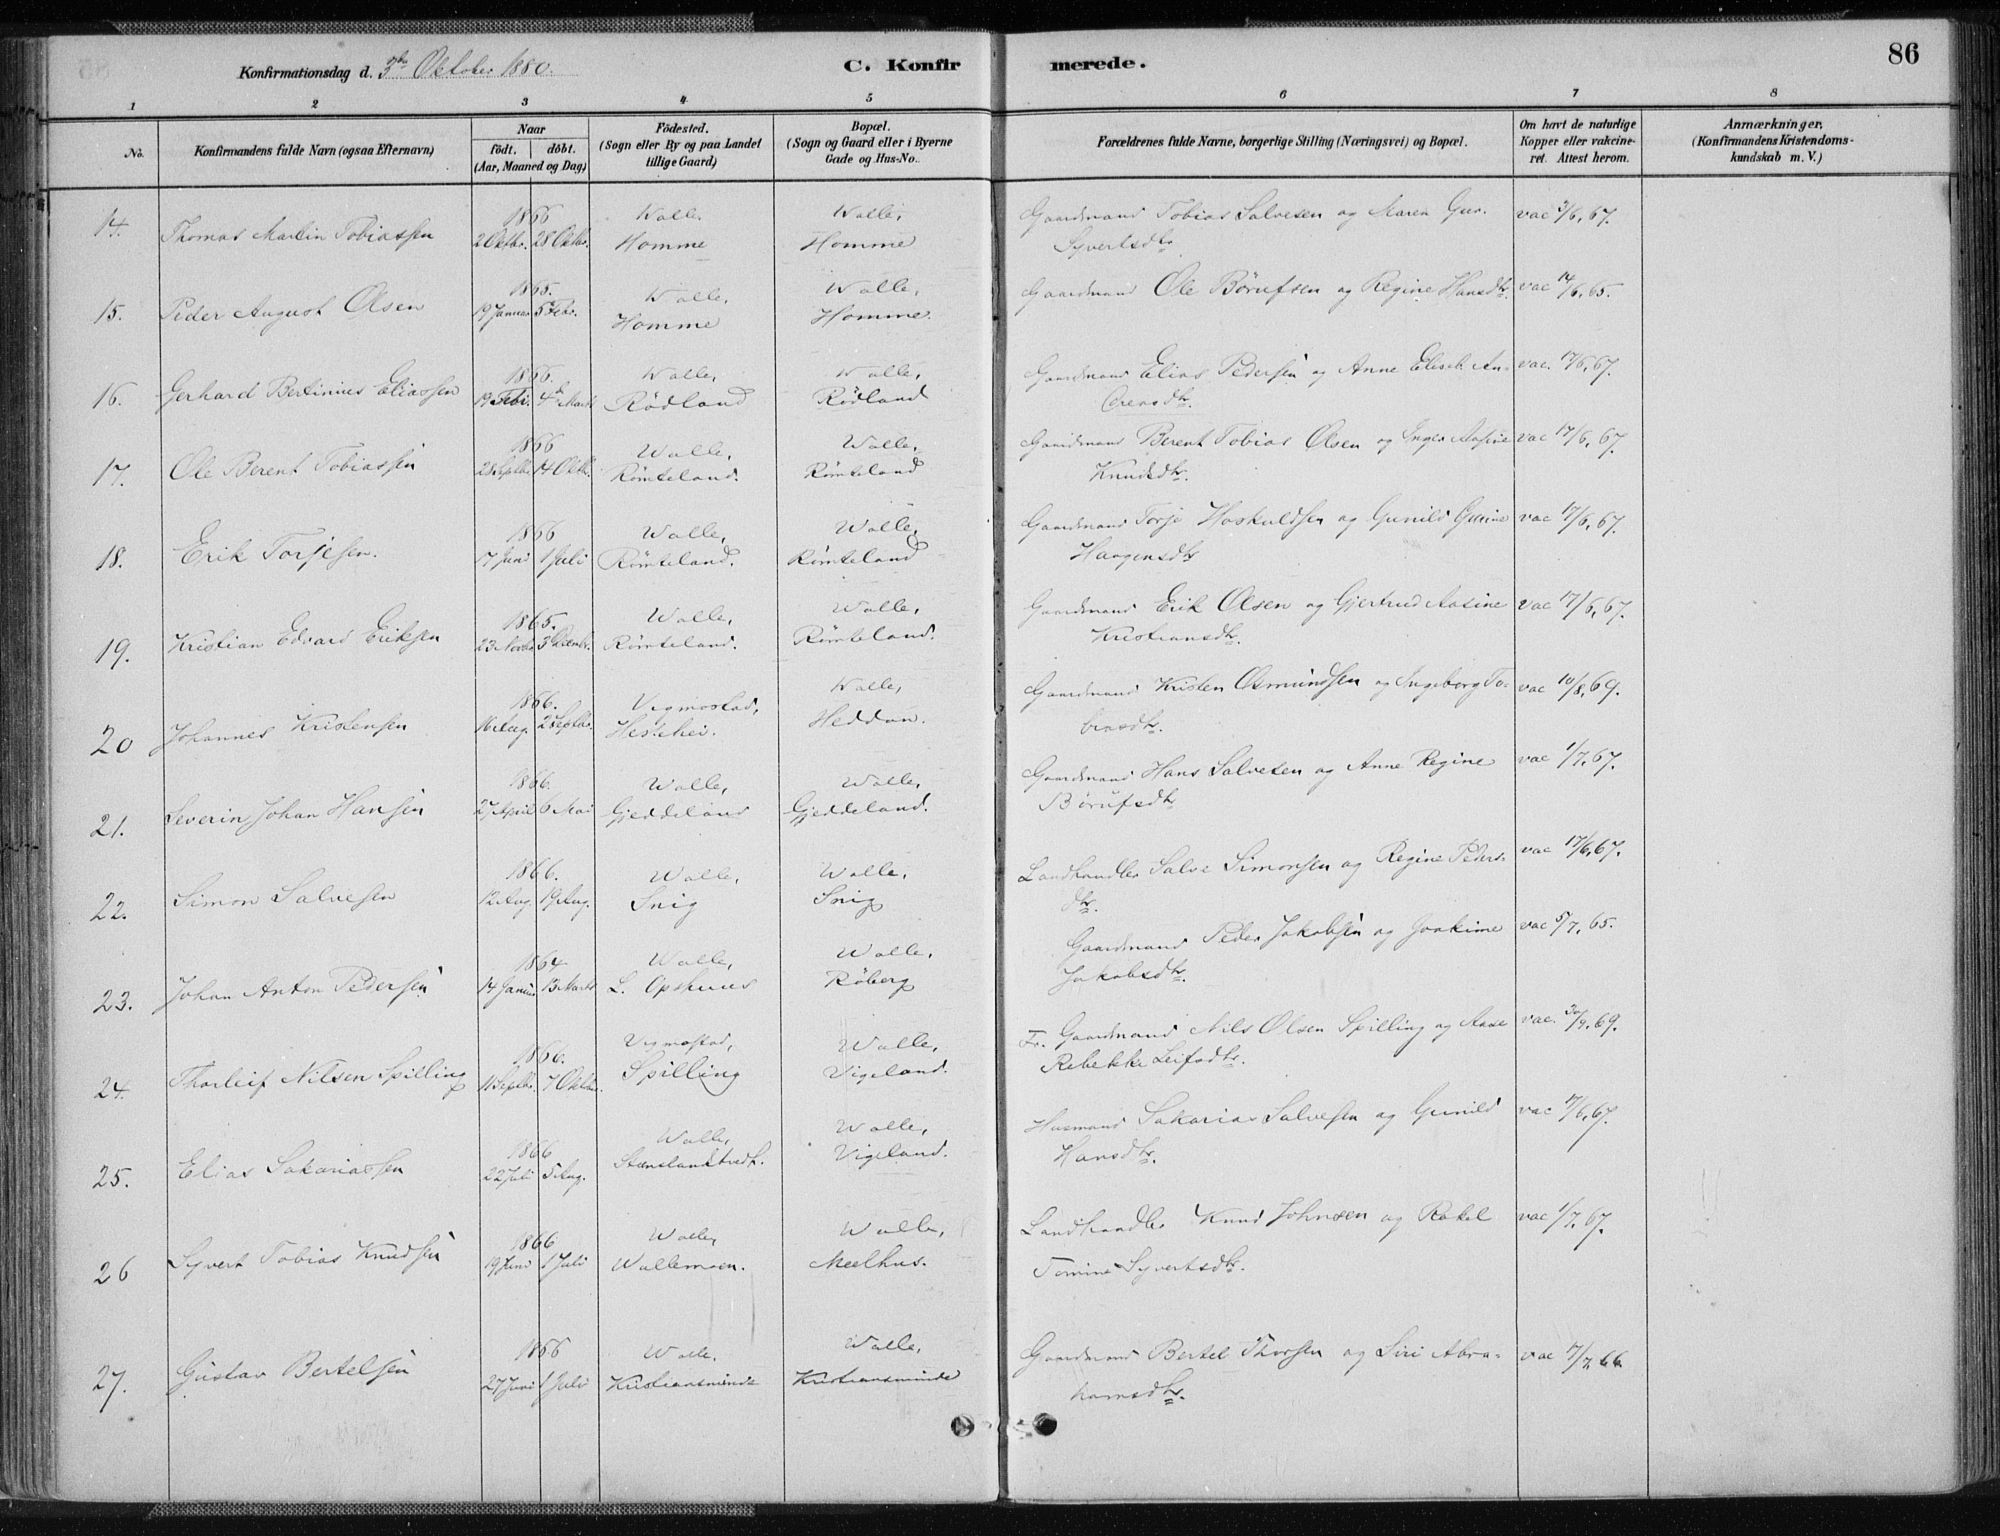 86
Konfirmationsdag d. 3die Oktober 1880.
C. Konfirmerede.
1 2 3 4 5 6 7 8
No.
Konfirmandens fulde Navn (ogsaa Efternavn)
Naar
födt. döbt.
(Aar, Maaned og Dag)
Födested.
(Sogn eller By og paa Landet
tillige Gaard)
Bopæl.
(Sogn og Gaard eller i Byerne
Gade og Hus-No.
Forældrenes fulde Navne, borgerlige Stilling (Næringsvei) og Bopæl.
Om havt de naturlige
Kopper eller vakcine-
ret. Attest herom.
Anmærkninger.
(Konfirmandens Kristendoms-
kundskab m. V.)
1866 Walle, Walle, Gaardmand Tobias Salvesen og Maren Gur. vac 3/6, 67.
14. Thomas Martin Tobiassen 2 Oktbr. 28 Oktbr. Homme Homme Syvertsdtr
1865. Walle, Walle, Gaardmand Ole Börufsen og Regine Hansdtr. vac 14/6, 65.
15. Peder August Olsen 19 Januar 5 Febr. Homme Homme.
1866. Walle, Walle, Gaardmand Elias Pedersen og Anne Eliseb. An- vac. 17/6, 67.
16. Gerhard Bertinius Eliassen 19 Febr. 4de Marts Rödland Rödland
1866 Walle, Walle, Gaardmand Berent Tobias Olsen og Inger Aasine vac 17/6, 67.
17. Ole Berent Tobiassen 28 Septbr. 14 Oktbr. Römteland. Römteland Knudsdtr.
1866 Walle, Walle, Gaardmand Torje Hoskuldsen og Gunild Gurine vac 17/6, 67.
18. Erik Torjesen. 17 Juni 1 Juli Römteland. Römteland Haagensdtr
1865. Walle, Walle, Gaardmand Erik Olsen og Gjertrud Aasine vac 17/6, 67.
19. Kristian Edvard Eriksen 23 Novbr. 3 Decembr. Römteland. Römteland. Kristiansdtr.
1866. Vigmostad, Walle, Gaardmand Kristen Osmundsen og Ingeborg To- vac 10/8, 69.
20 Johannes Kristensen 16 Aug. 2 Septbr. Hestehei. Heddan. biasdtr.
1866. Walle, Walle, Gaardmand Hans Salvesen og Anne Regine vac 1/7, 67.
21. Severin Johan Hansen 27 April 6 Mai Gjeddeland Gjeddeland. Börufsdtr
1866. Walle, Walle, Landhandler Salve Simonsen og Regine Peders- vac 17/6, 67.
22. Simon Salvesen 12 Aug. 19 Aug. Snig Snig dtr.
1864 Walle, Walle, Gaardmand Peder Jakobsen og Joakime vac 5/7, 65.
23. Johan Anton Pedersen 14 Januar 13 Marts L. Opshuus Röberg Jakobsdtr.
1866. Vigmostad, Walle, Fr. Gaardmand Nils Olsen Spilling og Aase vac. 30/9, 69.
24. Thorleif Nilsen Spilling 11 Septbr. 7 Oktober. Spilling Vigeland. Rebekke Leifsdtr.
1866 Walle, Walle, Husmand Sakarias Salvesen og Gunild vac 17/6, 67.
25. Elias Sakariassen 22 Juli 5 Aug. Vigeland. Hansdtr.
1866 Walle, Walle, Landhandler Knud Johnsen og Rakel vac 1/7, 67.
26 Syvert Tobias Knudsen 19 Juni 1 Juli Wallemoen. Meelhus. Tomine Syvertsdtr.
1866 Walle. Walle, Gaardmand Bertel Thorsen og Siri Abra- vac 7/7, 66
27. Gustav Bertelsen 27 Juni 1 Juli Kristiansminde Kristiansminde hamsdtr.